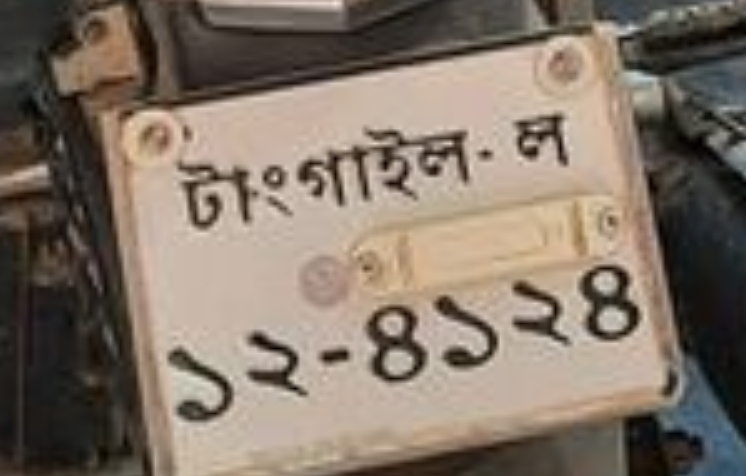 টাংগাইল- ল
১২-৪১২৪